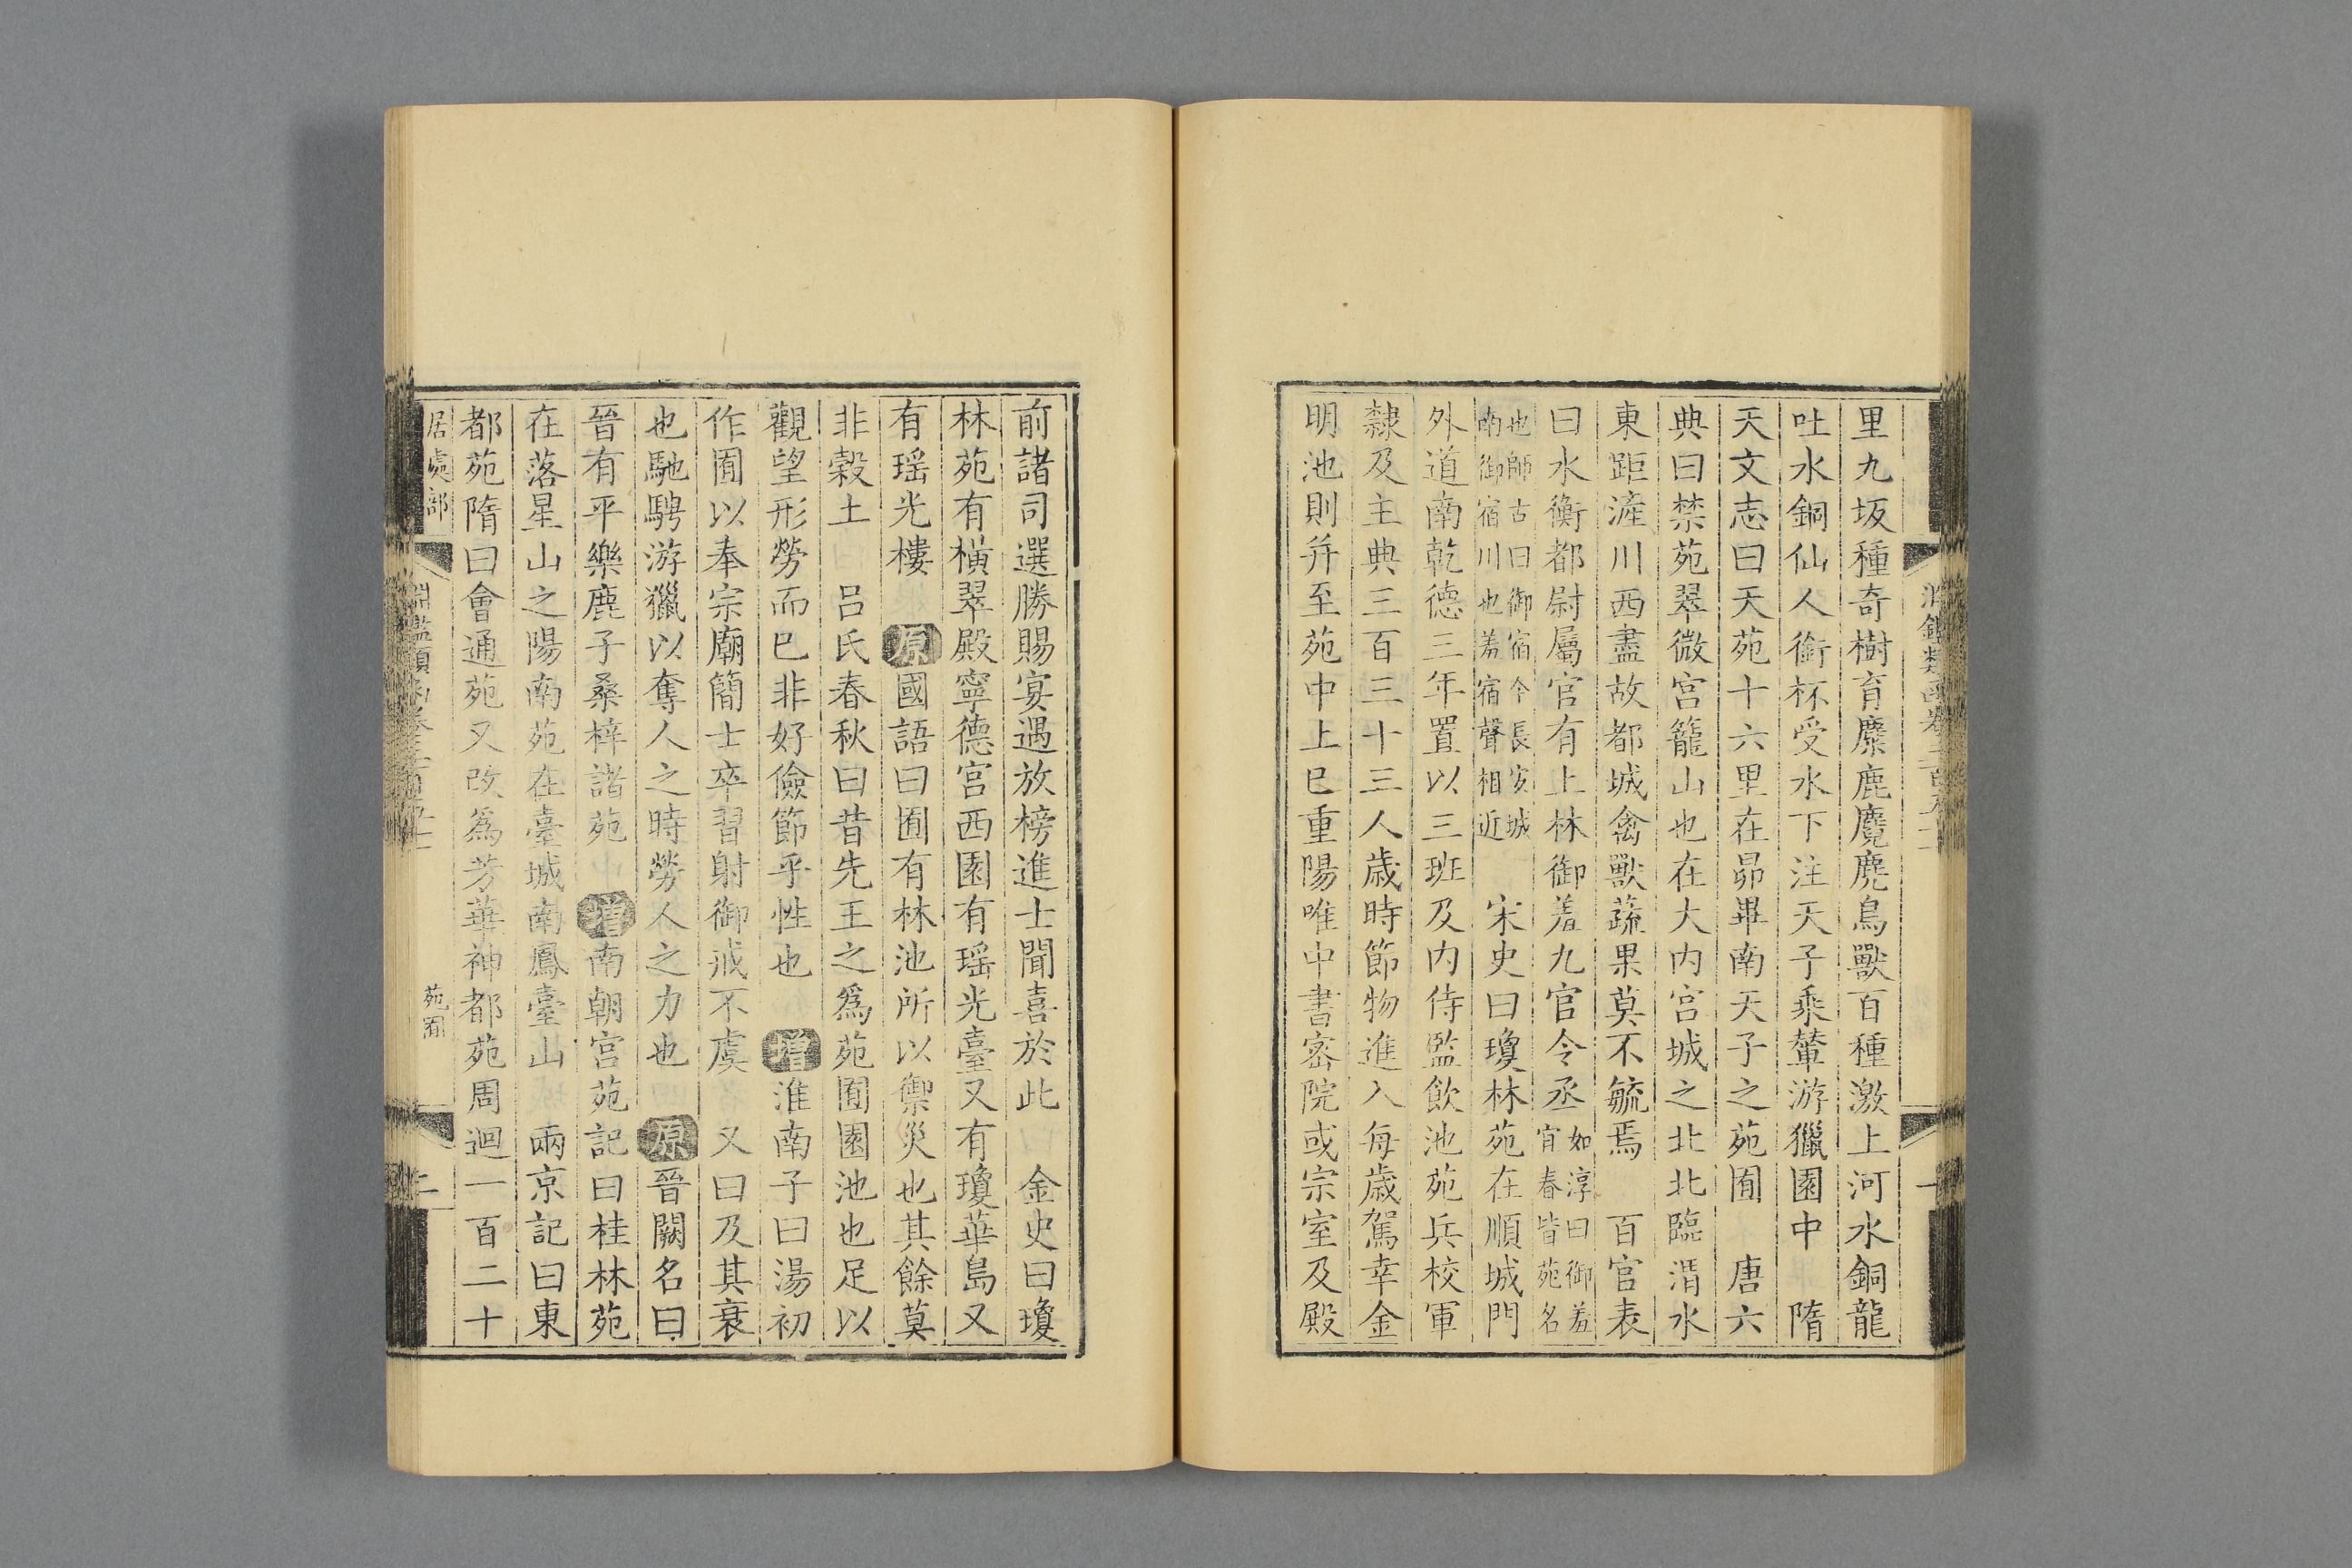 里九坂種竒樹育麋鹿麖麂鳥獸百種激上河水銅龍
吐水銅仙人銜杯受水下注天子乘輦游獵園中 隋
天文志曰天苑十六星在昴畢南天子之苑囿 唐六
典曰禁苑翠微宫籠山也在大内宫城之北北臨渭水
東距滻川西盡故都城禽獸蔬果莫不毓焉 百官表
曰水衡都尉屬官有上林御羞九官令丞如淳曰御羞
宜春皆苑名
也師古曰御宿今長安城
南御宿川也羞宿聲相近 宋史曰瓊林苑在順城門
外道南乾德三年置以三班及内侍監飲池苑兵校軍
隸及主典三百三十三人歲時節物進入每歲駕幸金
明池則并至苑中上巳重陽唯中書密院或宗室及殿
前諸司選勝賜宴遇放榜進士聞喜於此 金史曰瓊
林苑有橫翠殿寧德宫西園有瑶光臺又有瓊華島又
有瑶光樓 原國語曰囿有林池所以禦災也其餘莫
非穀土 吕氏春秋曰昔先王之爲苑囿園池也足以
觀望形勞而已非好儉節乎性也 增淮南子曰湯初
作囿以奉宗廟簡士卒習射御戒不虞 又曰及其衰
也馳騁游獵以奪人之時勞人之力也 原晉闕名曰
晉有平樂鹿子桑梓諸苑 增南朝宫苑記曰桂林苑
在落星山之陽南苑在臺城南鳳臺山 兩京記曰東
都苑隋曰會通苑又改爲芳華神都苑周迴一百二十
居處部
苑囿
二